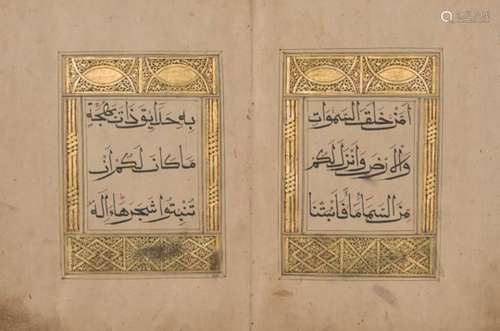 أمن خلق السموات
والارض وانزل لكم
من السما ما فانبتنا
به حدايق ذات بهجة
ما كان لكم ان
تنبتوا شجرها ءاله